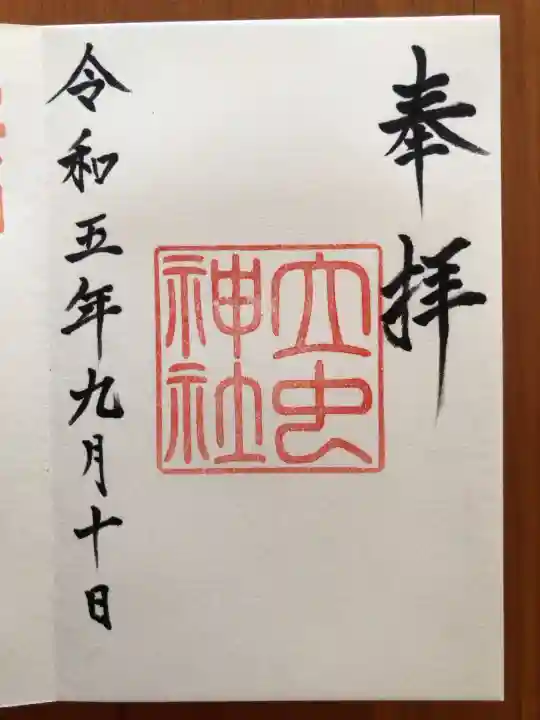 奉拝
立虫
神社
令和五年九月十日